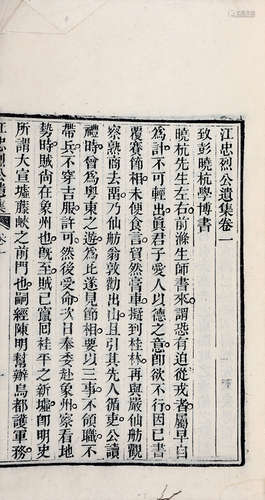 江忠烈公遺集卷一
致彭曉杭學博書
曉杭先生左右前滌生師書來謂恐有迫從戎者屬早自
為計不可輕出眞君子愛人以德之意即欲不行因已書
覆賽節相未便食言貿然膏車擬到桂林再與嚴仙舫觀
察熟商去畱乃仙舫翁敦勸出山且引其先人循吏公讀
禮時曾為粵東之遊為此遂見節相要以三事不領職不
帶兵不穿吉服許可然後受命次日奉委赴象州察看地
勢時賊尚在象州也旣至賊已竄回桂平之新墟卽明史
所謂大宣墟藤峽之前門也嗣經陳明幫辦烏都護軍務
江忠烈公遺集
卷一